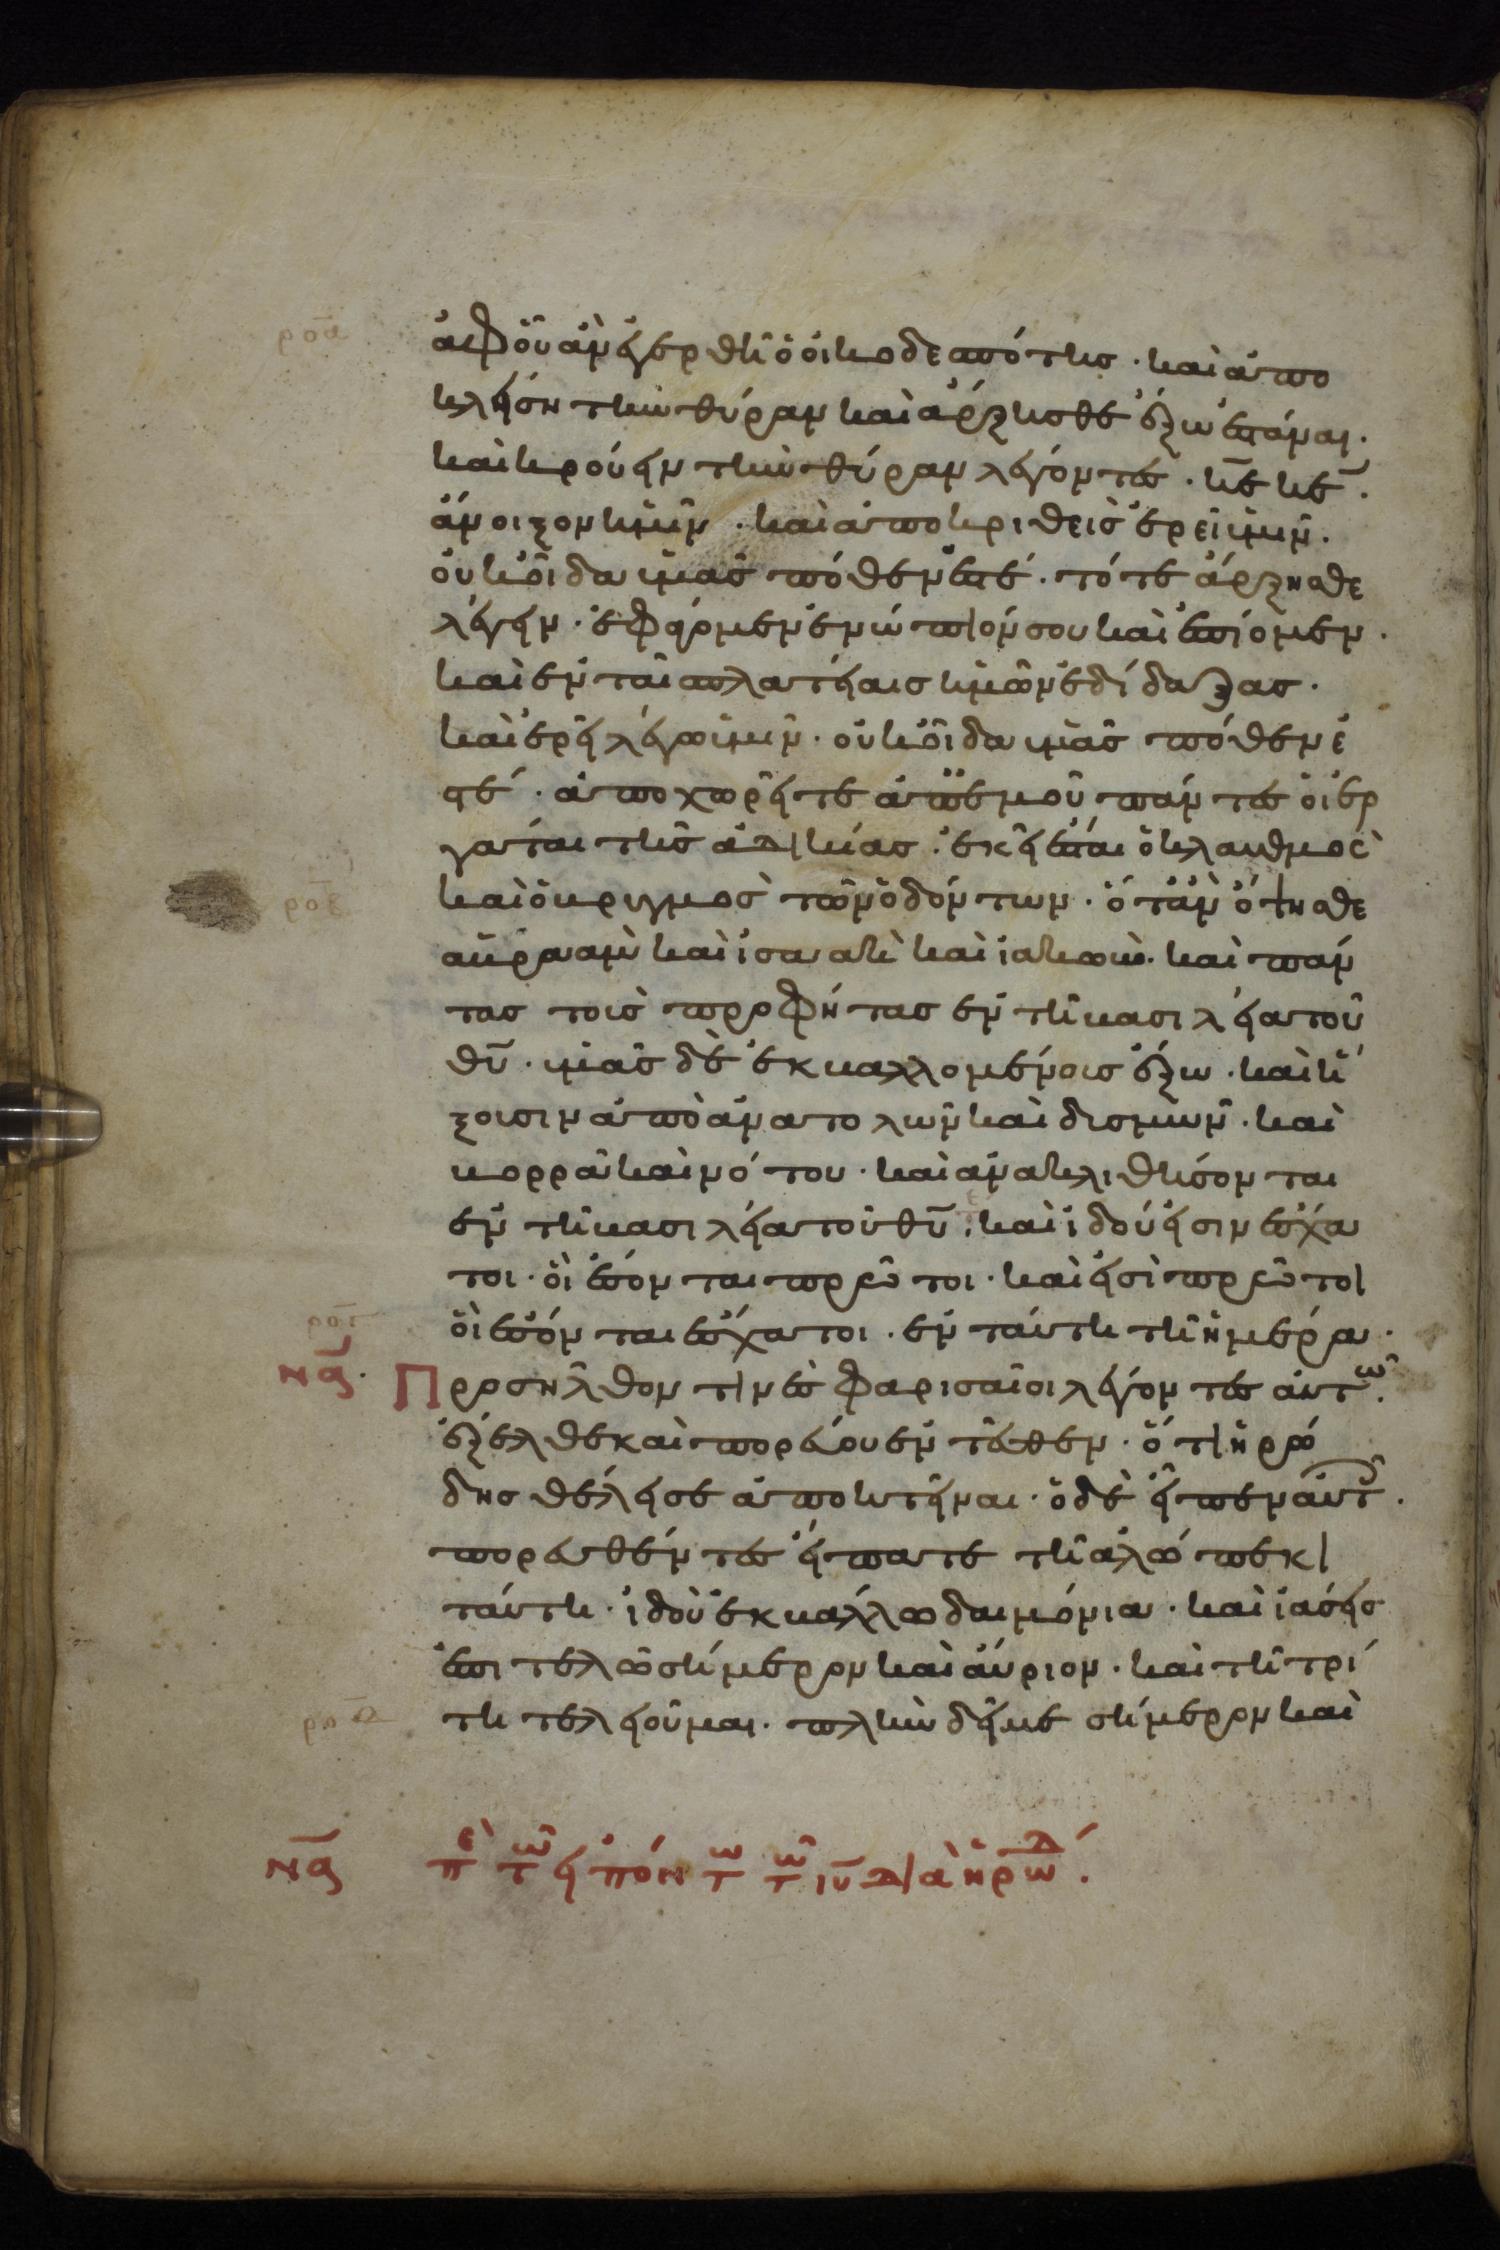 ἀφ οὗ ἂν ἐγερθῆ ὁ οἰκοδεσπότης · καὶ ἀπο
κλείση τὴν θύραν καὶ ἄρξησθε ἔξω ἑστάναι ·
καὶ κρούειν τὴν θύραν λέγοντες · κ̅ε̅ κ̅ε̅ ·
ἄνοιξον ἡμῖν · καὶ ἀποκριθεὶς ἐρεῖ ὑμῖν ·
οὐκ οἶδα ὑμᾶς πόθεν ἐστέ · τότε ἄρξησθε
λέγειν · ἐφάγομεν ἐνώπιόν σου καὶ ἐπίομεν ·
καὶ ἐν ταῖ πλατείαις ἡμῶν ἐδίδαξας ·
καὶ ἐρεῖ λέγω ὑμῖν · οὐκ οἶδα ὑμᾶς πόθεν ἐ
στέ · ἀποχωρεῖτε ἀπ ἐμοῦ πάντες οἱ ἐρ
γάται τῆς ἀδικίας · ἐκεῖ ἔσται ὁ κλαυθμὸς
καὶ ὁ βρυγμὸς τῶν ὀδόντων · ὅταν ὄψησθε
ἀβραὰμ καὶ ἰσαὰκ καὶ ἰακὼβ · καὶ πάν
τας τοὺς προφήτας ἐν τῆ βασιλεία τοῦ
θ̅υ̅ · ὑμᾶς δὲ ἐκβαλλομένους ἔξω · καὶ ἥ
ξουσιν ἀπὸ ἀνατολῶν καὶ δυσμῶν · καὶ
βορρᾶ καὶ νότου · καὶ ἀνακλιθήσονται
ἐν τῆ βασιλεία τοῦ θ̅υ̅ · καὶ ἰδού εἰσιν ἔσχα
τοι · οἳ ἔσονται πρῶτοι · καὶ εἰσὶ πρῶτοι
οἳ ἔσονται ἔσχατοι · ἐν ταύτη τῆ ἡμέρα ·
ν̅ϛ̅ · Προσῆλθον τινὲς φαρισαῖοι λέγοντες αὐτῶ ·
ἔξελθε καὶ πορεύου ἐντεῦθεν · ὅτι ἡρώ
δης θέλει σε ἀποκτεῖναι · ὁ δὲ εἶπεν αὐτ ·
πορευθέντες εἴπατε τῆ ἀλώπεκι
ταύτη · ἰδοὺ ἐκβάλλω δαιμόνια · καὶ ἰάσεις
ἐπιτελῶ σήμερον καὶ αὔριον · καὶ τῆ τρί
τη τελειοῦμαι · πλὴν δεῖ με σήμερον καὶ
ν̅ϛ̅ πε τῶ εἰπόν τω τῶ ι̅υ̅ διὰ ἡρωδ ·